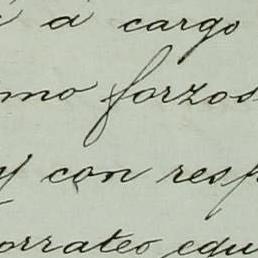 á cargo
mo forzos
y con resp
orrateo equ